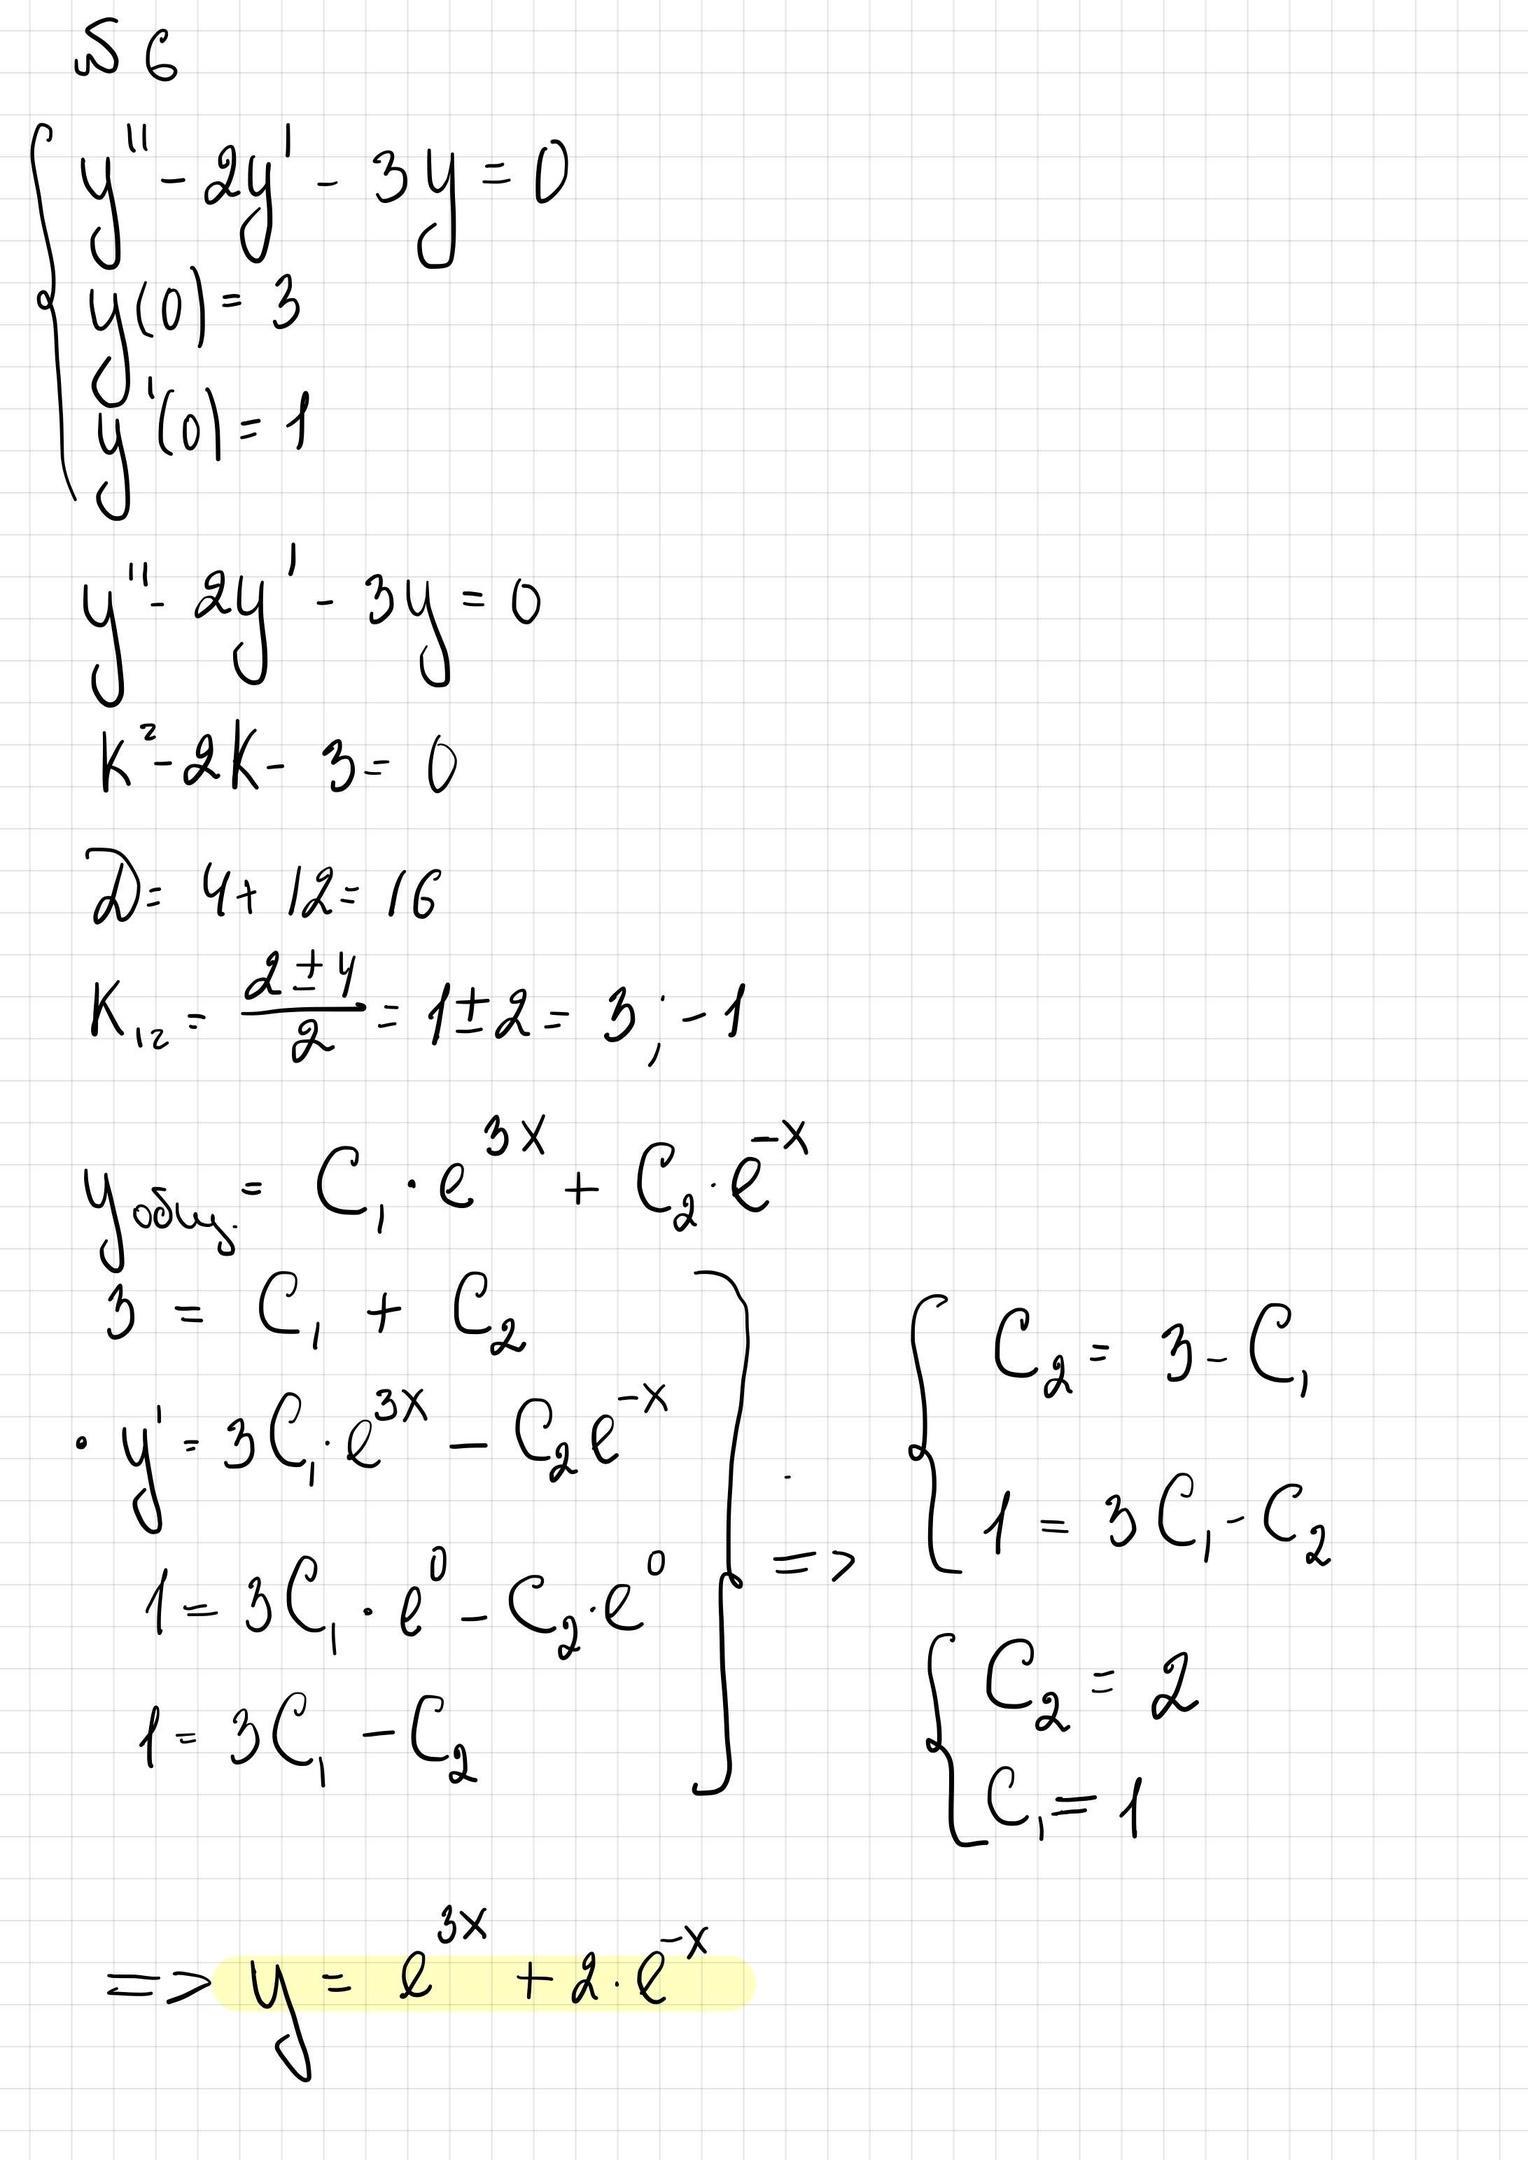 № 6
y'' - 2y' - 3y = 0
y(0) = 3
y'(0) = 1
y'' - 2y' - 3y = 0
k² - 2k - 3 = 0
D = 4 + 12 = 16
k₁₂ = (2 ± 4)/2 = 1 ± 2 = 3; -1
y общ. = C₁ · e^(3x) + C₂ · e^(-x)
3 = C₁ + C₂
· y' = 3C₁ · e^(3x) - C₂e^(-x)
1 = 3C₁ · e^0 - C₂ · e^0
1 = 3C₁ - C₂
=>
C₂ = 3 - C₁
1 = 3C₁ - C₂
C₂ = 2
C₁ = 1
=> y = e^(3x) + 2 · e^(-x)